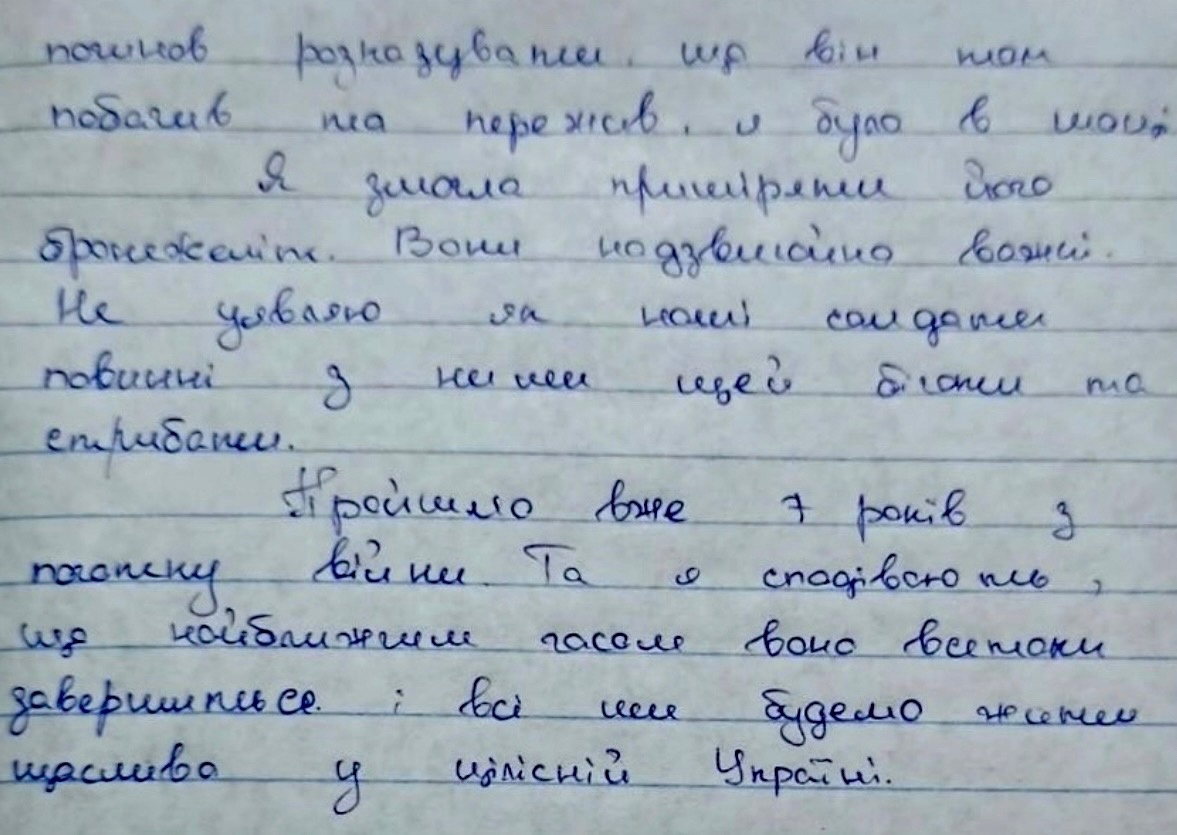 починав розказувати, що він там
побачив та пережив, я була в шоці
Я змогла приміряти його
бронежеліт. Вони надзвичайно важкі.
Не уявляю як наші солдати
повинні з ними щей бігати та
стрибати.
Пройшло вже 7 років з
початку війни. Та я сподіваюсь,
що найближчим часом вона всетаки
завершиться і всі ми будемо жити
щасливо у цілісній Україні.